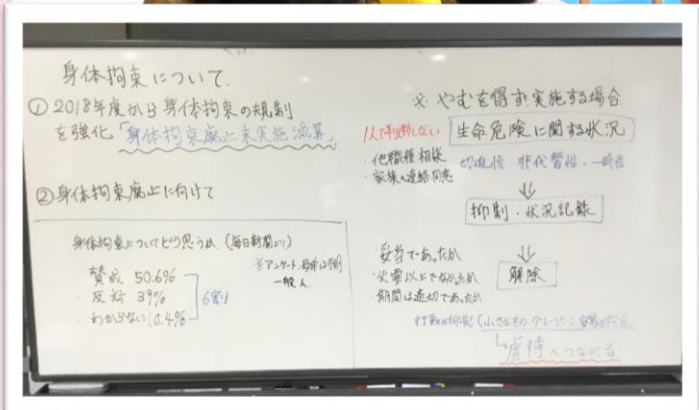 身体拘束について.
① 2018年度から身体拘束の規制
を強化「身体拘束廃止未実施減算」
② 身体拘束廃止に向けて
身体拘束についてどう思うか. (毎日新聞より)
・賛成 50.6%
・反対 39%
・わからない 10.4%
6割り
※アンケート
一般人
※ やむを得ず実施する場合
1人で判断しない
・他職種相談
・家族へ連絡・同意
生命危険に関する状況
切迫性・非代替性・一時性
⇓
抑制・状況記録
⇓
解除
・妥当であったか
・必要以上でなかったか
・期間は適切であったか
行動の抑制 (小さなもの グレーゾーン
虐待へつながる